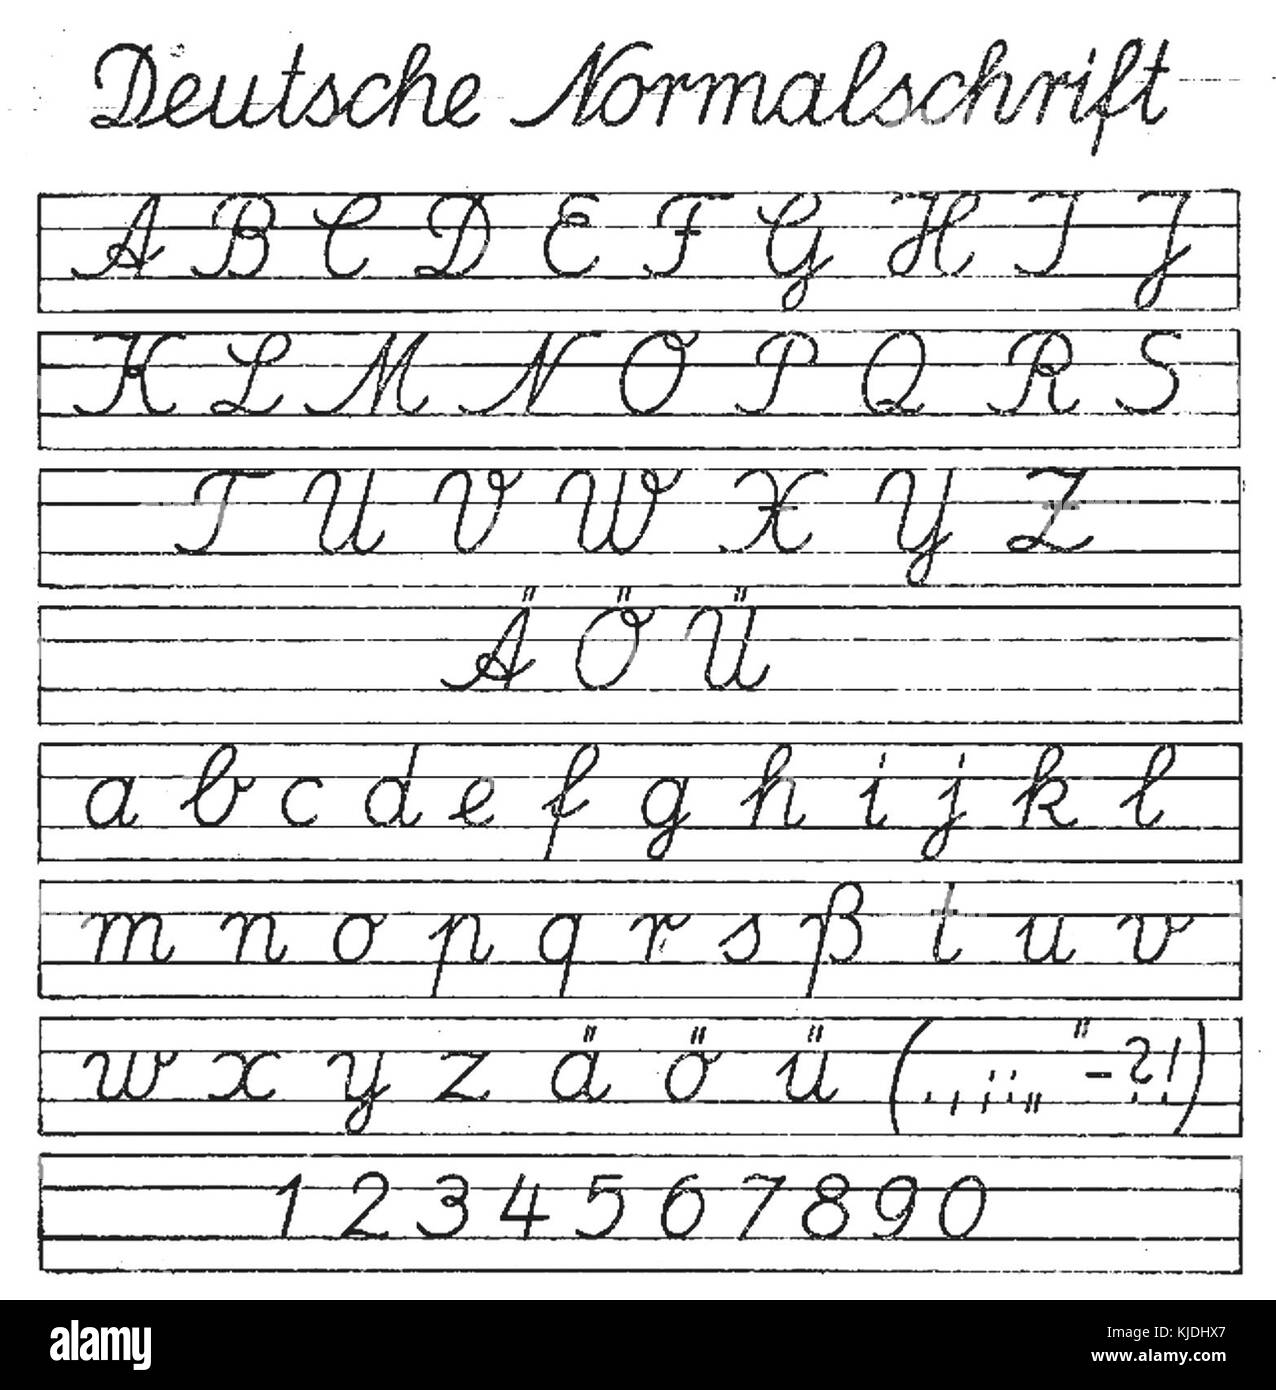 Deutsche Normalschrift
A B C D E F G H I J
K L M N O P Q R S
T U V W X Y Z
Ä Ö Ü
a b c d e f g h i j k l
m n o p q r s ß t u v
w x y z ä ö ü ( . , ; : „ " - ? ! )
1 2 3 4 5 6 7 8 9 0
alamy
Image ID: KJDHX7
www.alamy.com